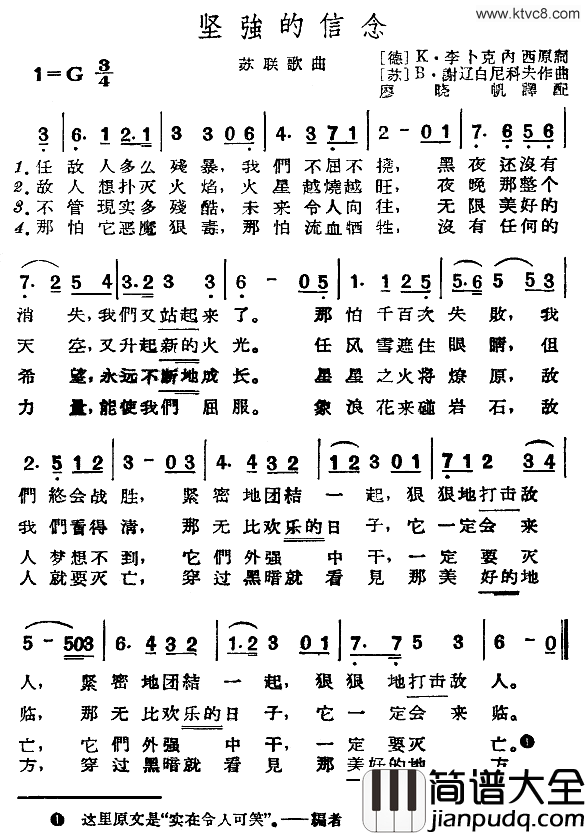 www.ktvc8.com
坚強的信念
1=G 3/4
苏联歌曲
[德]K·李卜克內西原詞
[苏]B·謝辽白尼科夫作曲
廖晓帆譯配
3 6. 12 3 3 306 4. 371 2-01 7. 656
1.任敌人多么残暴，我們不屈不撓，黑夜还沒有
2.敌人想扑灭火焰，火星越燒越旺，夜晚那整个
3.不管現实多殘酷，未来令人向往，无限美好的
4.那怕它恶魔狠毒，那怕流血牺牲，沒有任何的
7. 25 4 3.2 3 3 6-05 1. 125 5.6 5 5
消失，我們又站起来了。那怕千百次失敗，我
天空，又升起新的火光。任风雪遮住眼睛，但
希望，永远不断地成长。星星之火将燎原，敌
力量，能使我們屈服。象浪花来碰岩石，敌
2. 512 3-03 4. 324 12301 712 34
們終会战胜，紧密地团結一起，狠狠地打击敌
我們看得清，那无比欢乐的日子，它一定会来
人梦想不到，它們外强中干，一定要灭
人就要灭亡，穿过黑暗就看見那美好的地
5-503 6. 432 1.2 3 01 7. 7 5 3 6-0
人，紧密地团結一起，狠狠地打击敌人。
临，那无比欢乐的日子，它一定会来临。
亡，它們外强中干，一定要灭亡。❶
方，穿过黑暗就看見那美好的地方。
❶ 这里原文是“实在令人可笑”。——編者
简谱大全
www.jianpudq.com